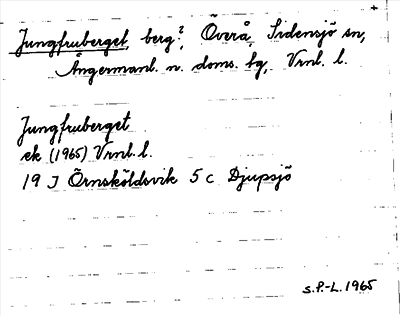 Jungfruberget, berg?, Överå, Sidensjö sn,
Ångermanl. n. doms. tg, Vrnl. l.
Jungfruberget
ek (1965) Vrnl. l.
19 J Örnsköldsvik 5 c Djupsjö
S.P.-L. 1965